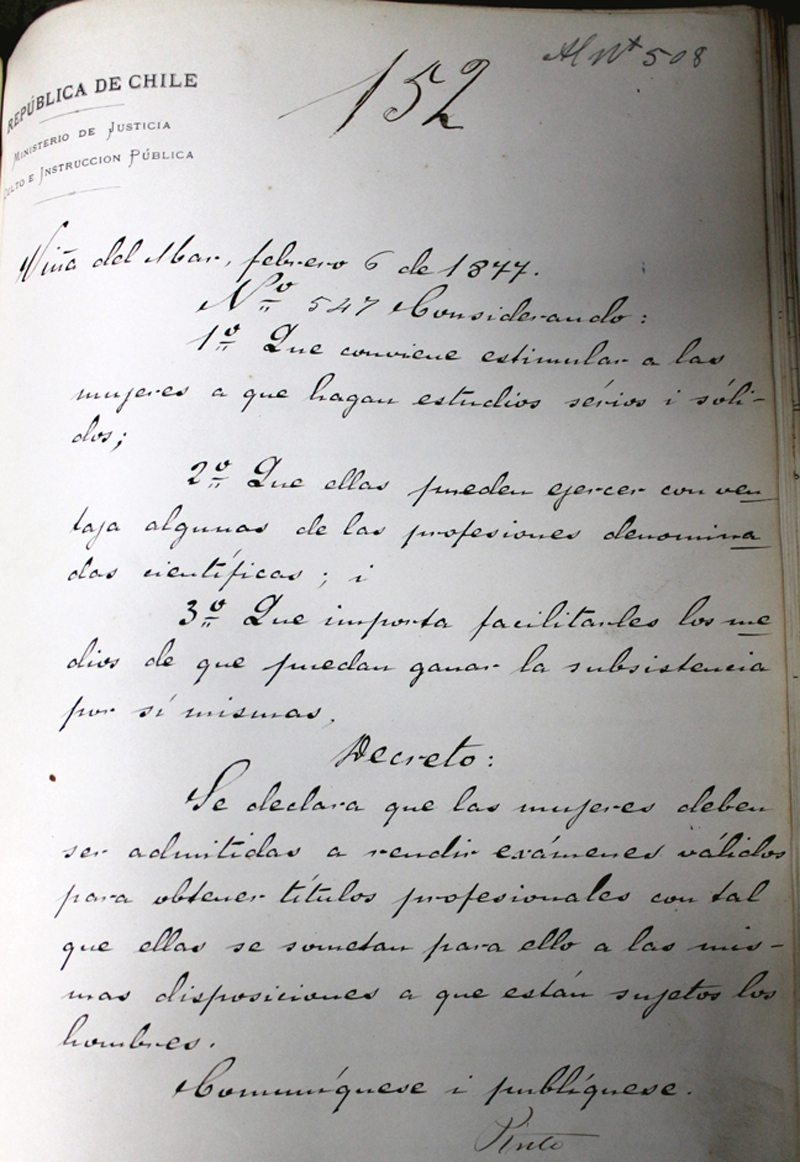 Al Nº 508
152
REPÚBLICA DE CHILE
MINISTERIO DE JUSTICIA
CULTO E INSTRUCCION PÚBLICA
Viña del Mar, febrero 6 de 1877.
Nº 547 Considerando:
1º Que conviene estimular a las
mujeres a que hagan estudios sérios i sóli-
dos;
2º Que ellas pueden ejercer con ven
taja algunas de las profesiones denomina
das científicas; i
3º Que importa facilitarles los me
dios de que puedan ganar la subsistencia
por sí mismas,
Decreto:
Se declara que las mujeres deben
ser admitidas a rendir exámenes válidos
para obtener títulos profesionales con tal
que ellas se sometan para ello a las mis-
mas disposiciones a que están sujetos los
hombres.
Comuníquese i publíquese.
Pinto